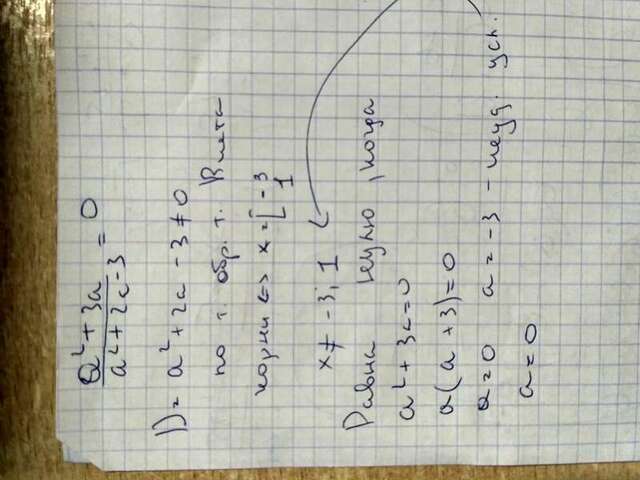 a² + 3a / a² + 2a - 3 = 0
D = a² + 2a - 3 ≠ 0
по т. обр. т. Виета
корни <=> x = [ -3 1
x ≠ -3; 1
Равна нулю, когда
a² + 3a = 0
a(a + 3) = 0
a = 0 a = -3 - неуд. усл.
a = 0